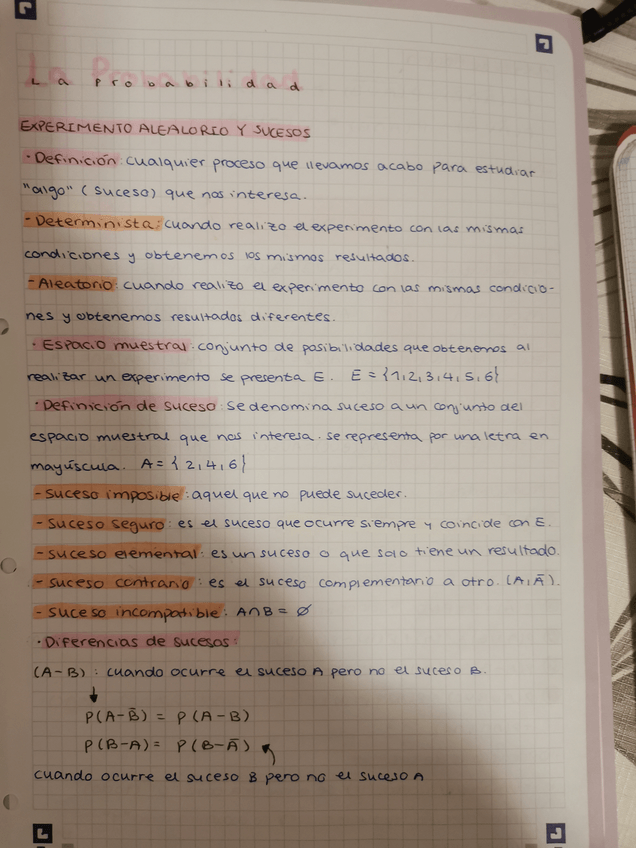 La Probabilidad
EXPERIMENTO ALEALORIO Y SUCESOS
· Definición: cualquier proceso que llevamos acabo para estudiar
"algo" (suceso) que nos interesa.
- Determinista: cuando realizo el experimento con las mismas
condiciones y obtenemos los mismos resultados.
- Aleatorio: cuando realizo el experimento con las mismas condicio-
nes y obtenemos resultados diferentes.
· Espacio muestral: conjunto de posibilidades que obtenemos al
realizar un experimento se presenta E. E = {1,2,3,4,5,6}
· Definición de suceso: se denomina suceso a un conjunto del
espacio muestral que nos interesa. se representa por una letra en
mayúscula. A = {2,4,6}
- Suceso imposible: aquel que no puede suceder.
- Suceso seguro: es el suceso que ocurre siempre y coincide con E.
- Suceso elemental: es un suceso o que solo tiene un resultado.
- Suceso contrario: es el suceso complementario a otro. (A, Ā).
- Suceso incompatible: A∩B = ∅
· Diferencias de sucesos:
(A-B): cuando ocurre el suceso A pero no el suceso B.
P(A-B̄) = P(A-B)
P(B-A) = P(B-Ā)
cuando ocurre el suceso B pero no el suceso A